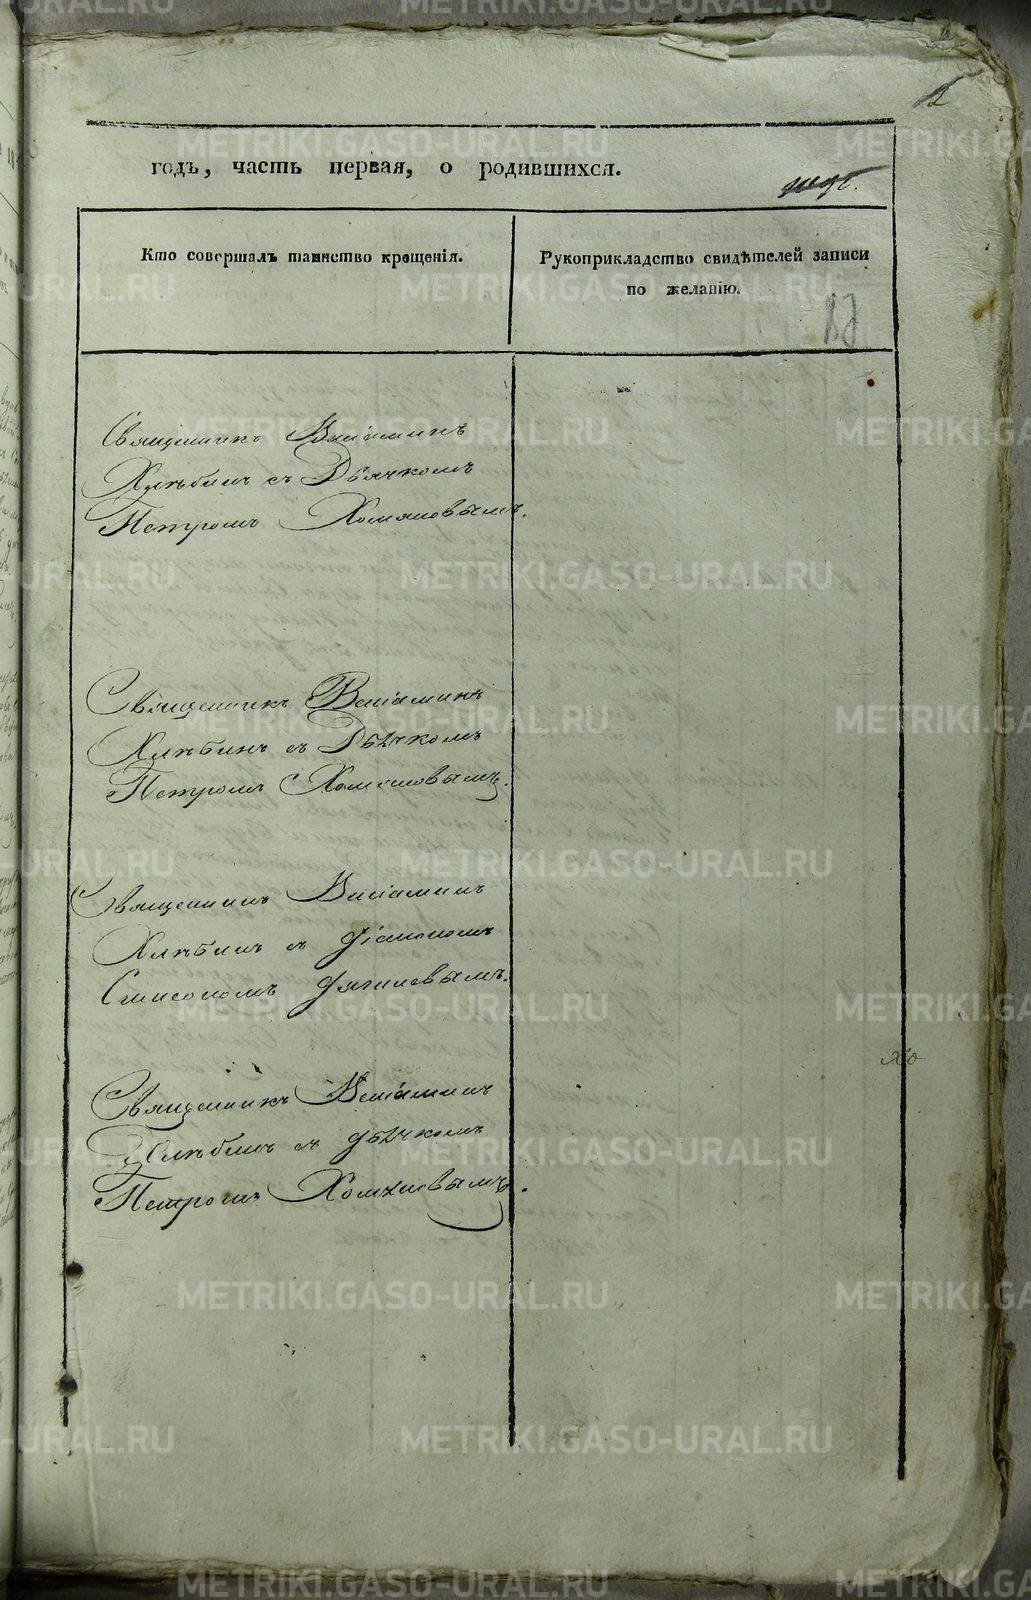 годъ, часть первая, о родившихся.
Кто совершалъ таинство крещенія.
Рукоприкладство свидѣтелей записи
по желанію.
Священникъ Веніаминъ
Хлѣбинъ съ Дьячкомъ
Петромъ Хомяковымъ.
Священникъ Веніаминъ
Хлѣбинъ съ Дьячкомъ
Петромъ Хомяковымъ.
Священникъ Веніаминъ
Хлѣбинъ съ Діакономъ
Симеономъ Дягилевымъ.
Священникъ Веніаминъ
Хлѣбинъ съ дьячкомъ
Петромъ Хомяковымъ.
METRIKI.GASO-URAL.RU